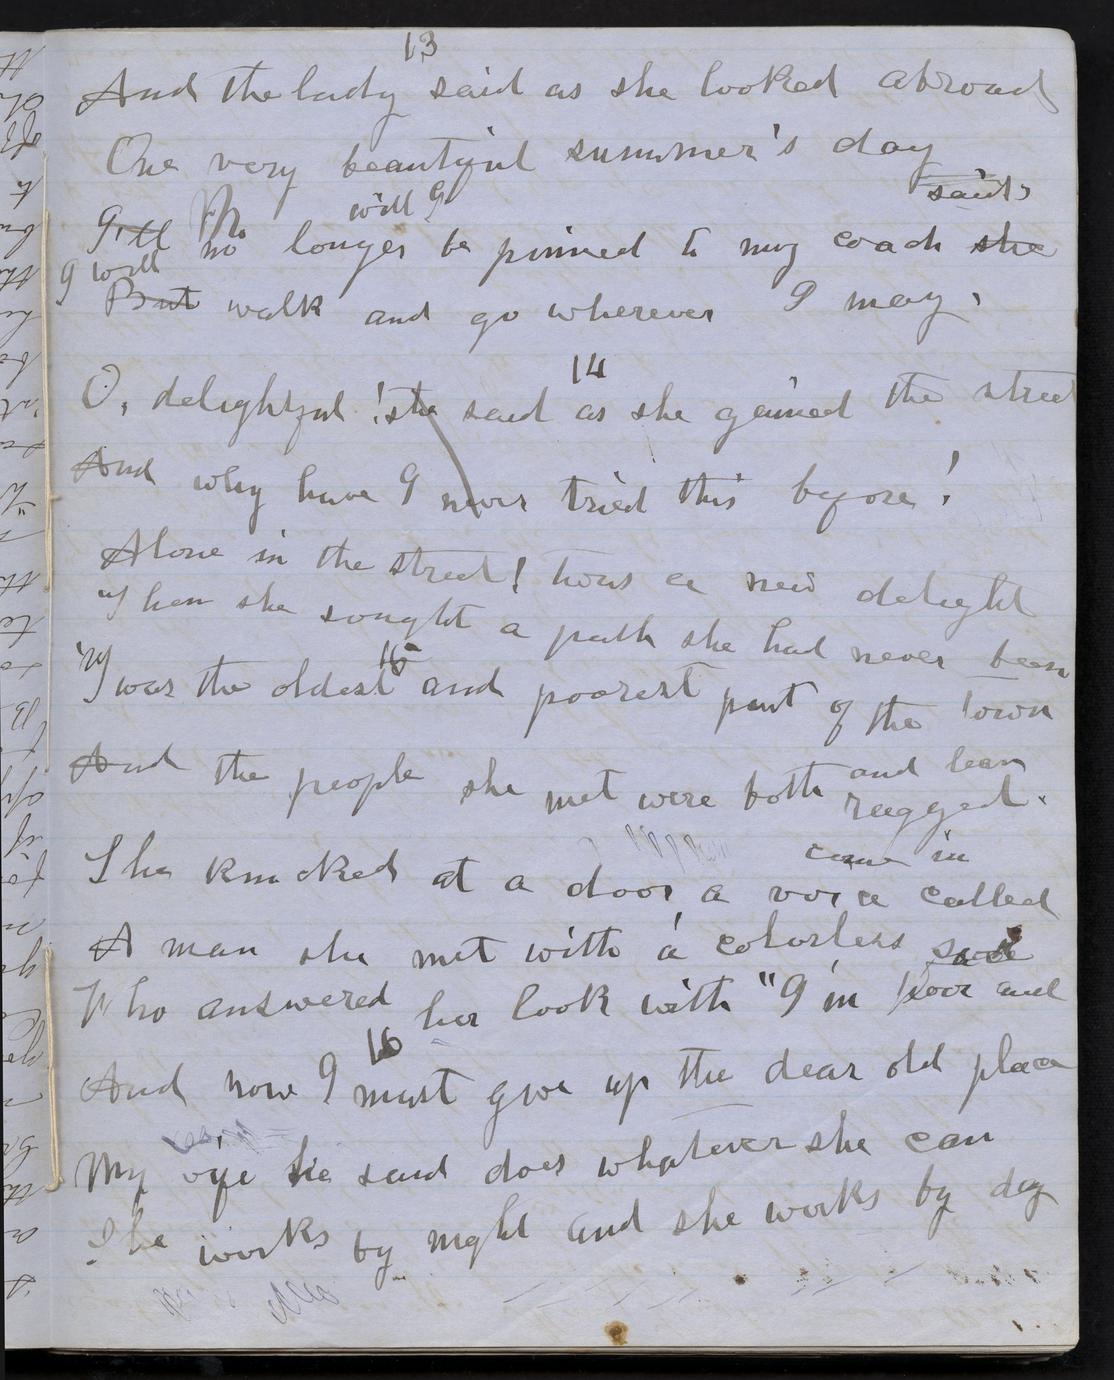 13
And the lady said as she looked abroad
One very beautiful summer's day
will I said
I'll no longer be pinned to my coach she
I will
But walk and go wherever I may,
14
O, delightful! she said as she gained the street
And why have I never tried this before!
Alone in the street! twas a new delight
Then she sought a path she had never been
15
'Twas the oldest and poorest part of the town
And the people she met were both and lean
ragged.
came in
She knocked at a door, a voice called
A man she met with a colorless
Who answered her look with "I'm poor and
16
And now I must give up the dear old place
My wife he said does whatever she can
She works by night and she works by day